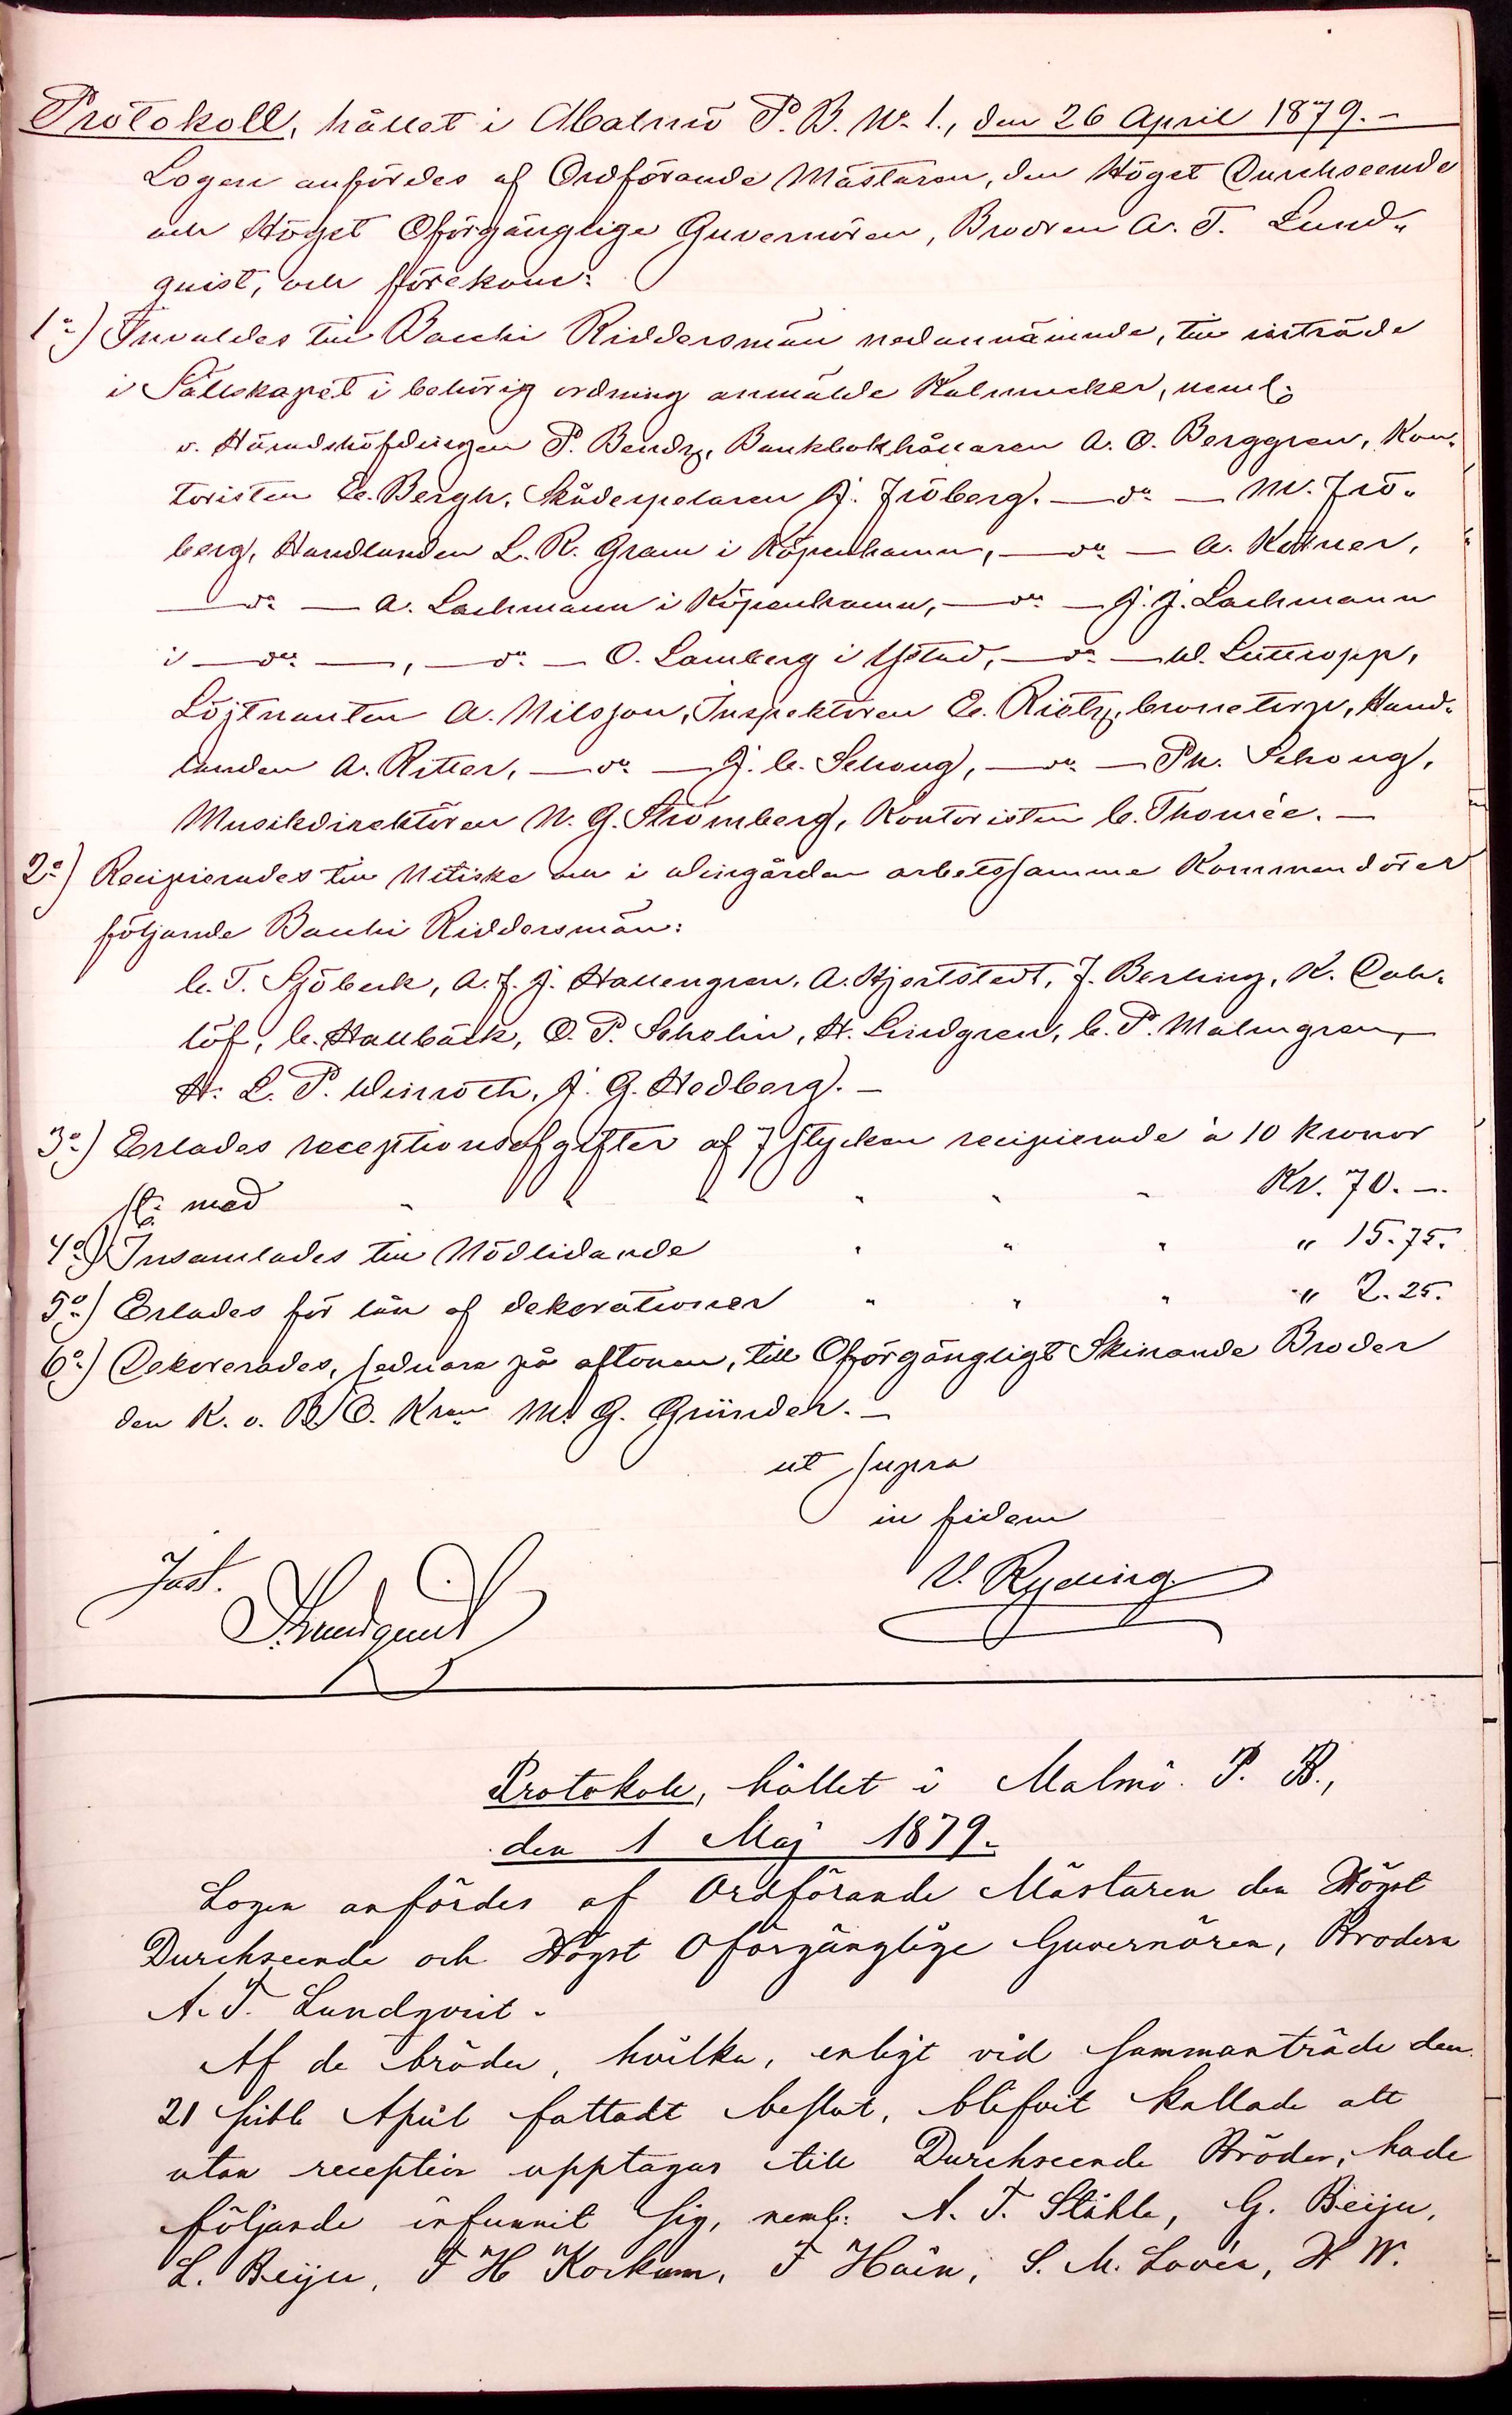 Protokoll, hållet i Malmö P. B. No 1., den 26 April 1879.–
Logen anfördes af Ordförande Mästaren, den Högst Durchseende
och Högst Oförgänglige Guvernören, Brodren A. T. Lund-
quist, och förekom:
1o) Invaldes till Bacchi Riddersmän nedannämnde, till inträde
i Sällskapet i behörig ordning anmälde Kalmucker, neml:
v. Häradshöfdingen P. Bendz, Bankbokhållaren A. O. Berggren, Kon-
toristen E. Bergh, Skådespelaren J. Fröberg, — do — M. Frö-
berg, Handlanden L. R. Gram i Köpenhamn, — do — A. Kärner,
— do — A. Lachmann i Köpenhamn, — do — J. J. Lachmann
i — do —, — do — O. Lamberg i Ystad, — do — W. Luttropp,
Löjtnanten A. Nilsson, Inspektoren E. Rietz, Cronetorp, Hand-
landen A. Ritter, — do — J. C. Schoug, — do — Ph. Schoug,
Musikdirektören N. G. Strömberg, Kontoristen C. Thomée. –
2o) Recipierades till Nitiske och i vingården arbetssamme Kommendörer
följande Bacchi Riddersmän:
C. T. Sjöbeck, A. F. J. Hallengren, A. Hjertstedt, F. Berling, K. Dah-
löf, C. Hallbäck, O. P. Scholin, H. Lindgren, C. P. Malmgren,
H. L. P. Winroth, J. G. Hedberg. –
3o) Erlades receptionsafgifter af 7 stycken recipierade à 10 kronor
st: med " " " " " " Kr. 70. –.
4o) Insamlades till Nödlidande " " " " 15.75.
5o) Erlades för lån af dekorationer " " " " 2.25.
6o) Dekorerades, sednare på aftonen, till Oförgängligt Skinande Broder
den K. o. B. O. M. G. Gründer. –
ut supra
in fidem
Just. V. Ryding.
Lundquist
Protokoll, hållet i Malmö P. B.,
den 1 Maj 1879.
Logen anfördes af Ordförande Mästaren den Högst
Durchseende och Högst Oförgänglige Guvernören, Brodern
A. T. Lundqvist.
Af de bröder, hvilka, enligt vid sammanträde den
21 sistl April fattadt beslut, blifvit kallade att
utan reception upptagas till Durchseende Bröder, hade
följande infunnit sig, neml: A. T. Ståhle, G. Beijer,
L. Beijer, F H Kockum, F Hain, S. M. Lovén, H W.